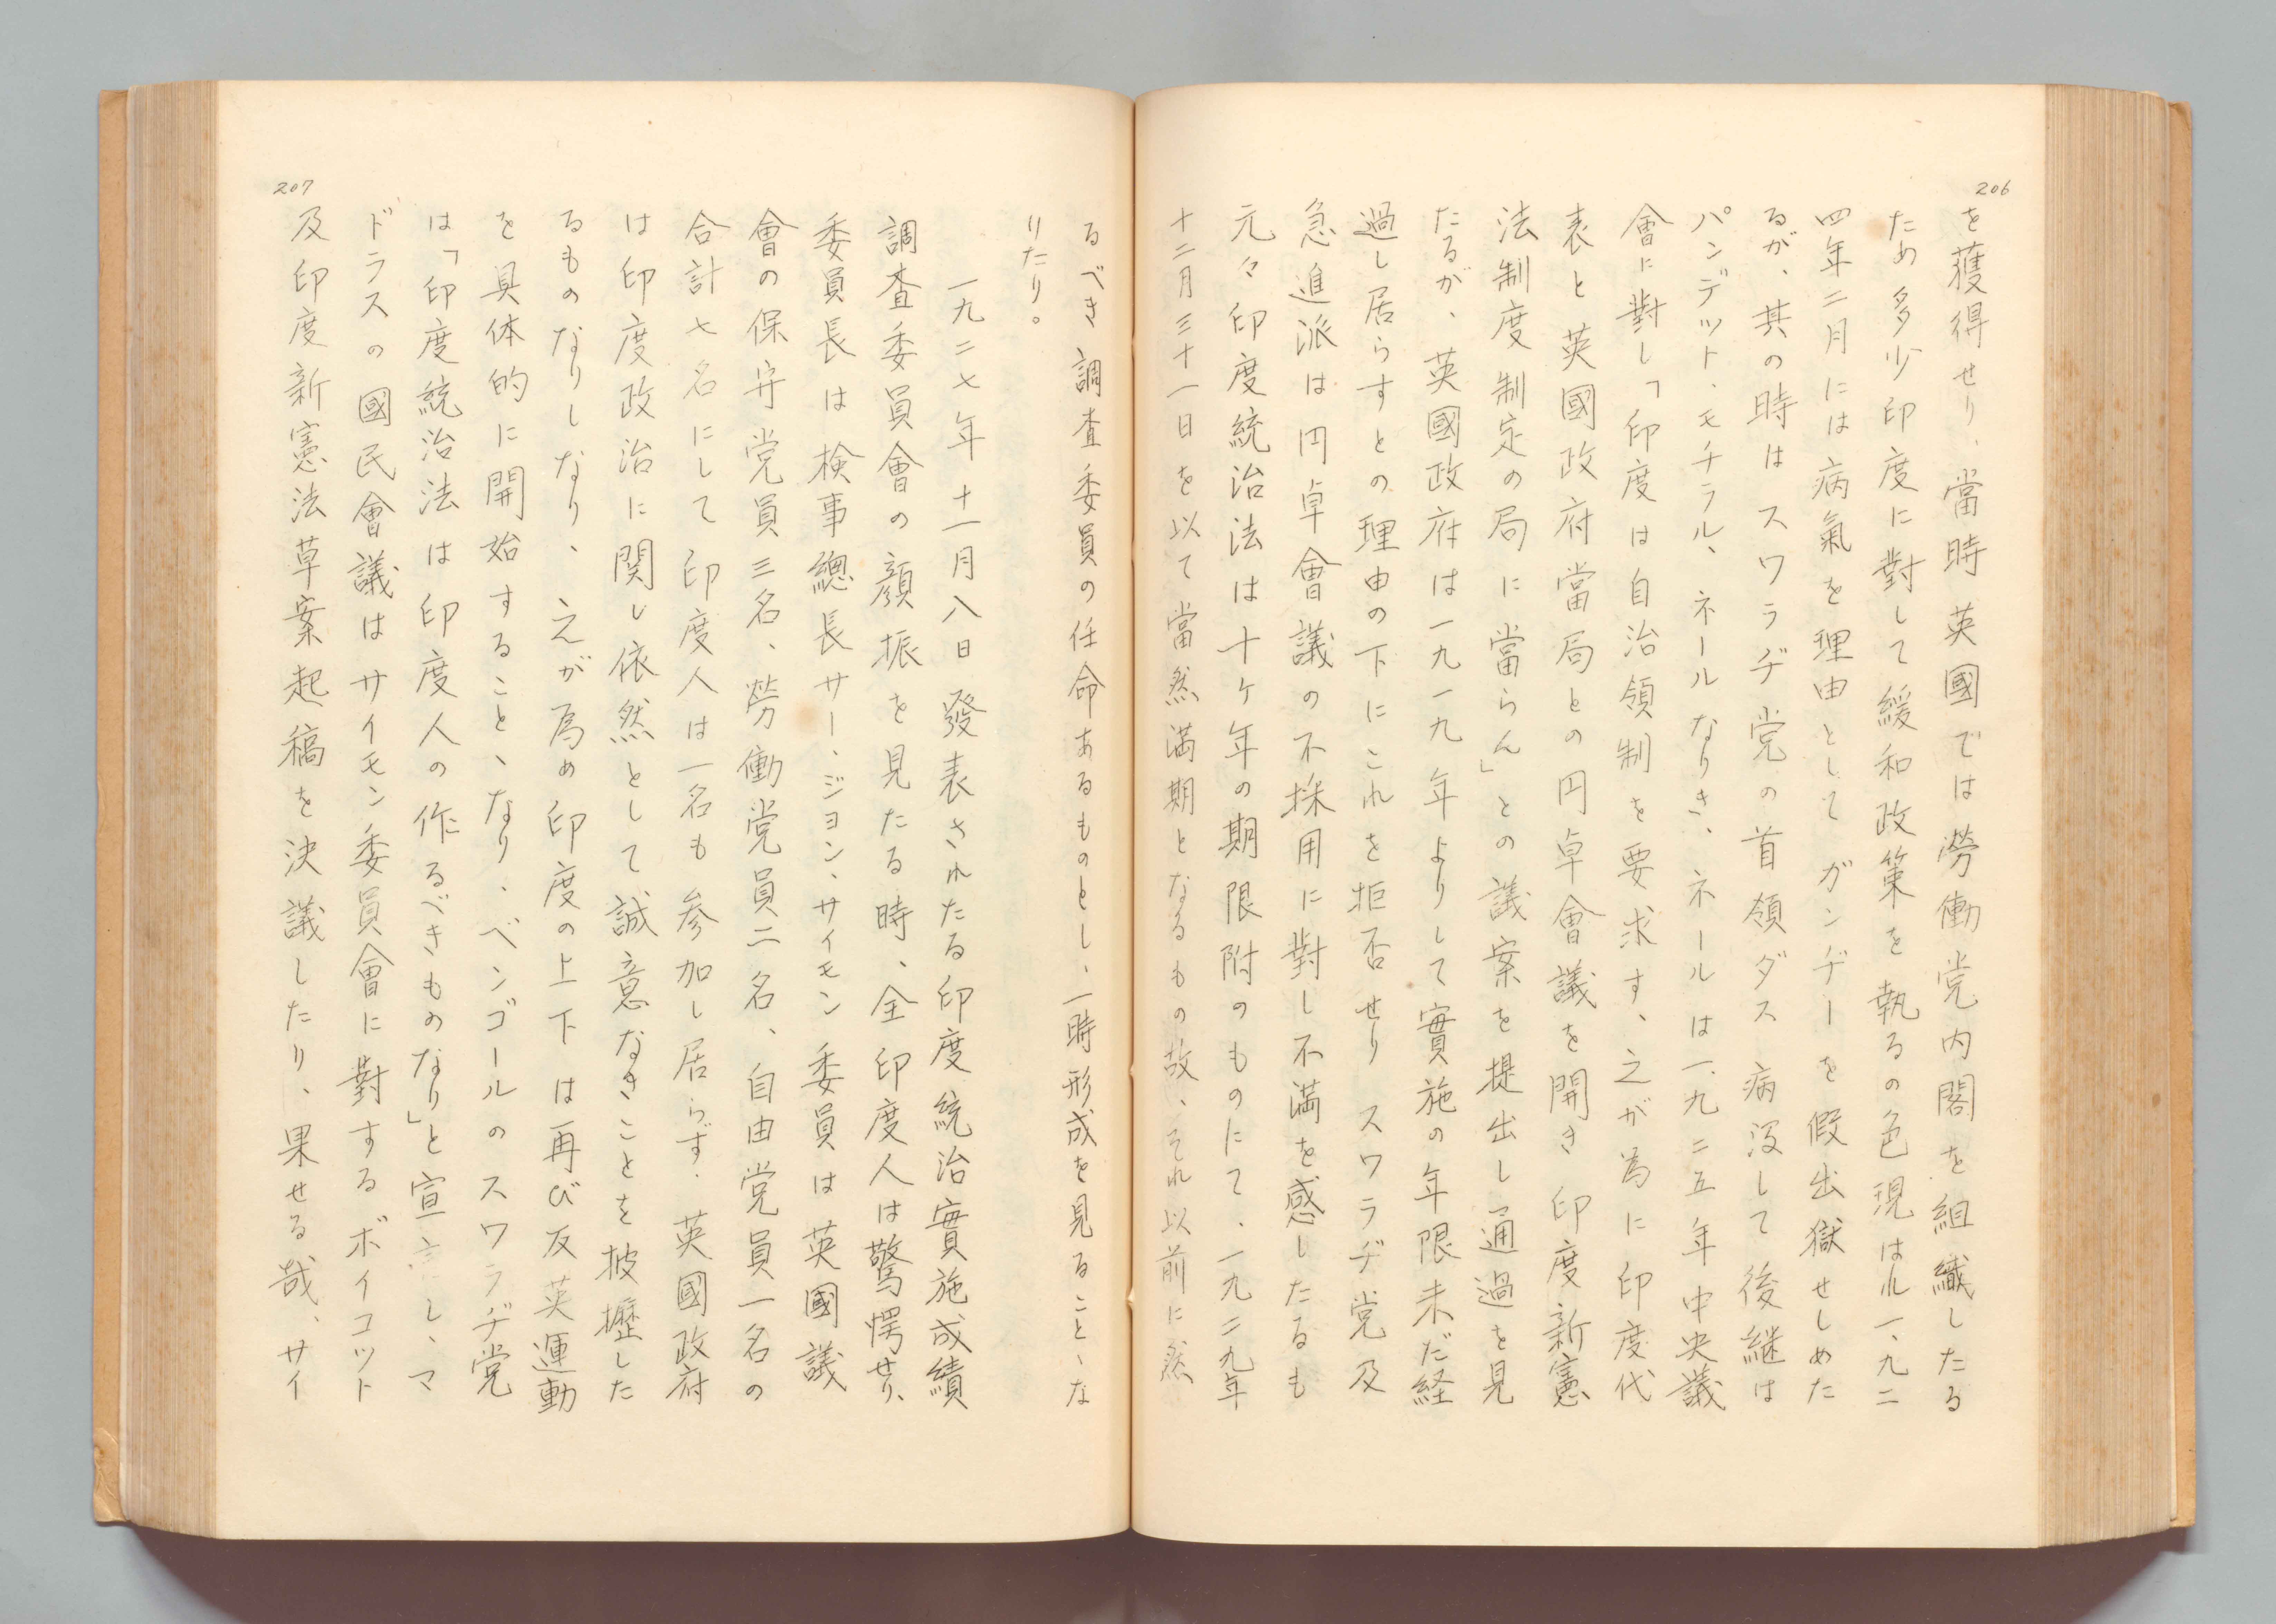 206
を獲得せり、當時英國では勞働党内閣を組織したる
ため多少印度に對して緩和政策を執るの色現はれ一、九二
四年二月には病氣を理由としてガンヂーを假出獄せしめた
るが、其の時はスワラヂ党の首領ダス病没して後継は
パンデット、モチラル、ネールなりき、ネールは一、九二五年中央議
會に對し「印度は自治領制を要求す、之が為に印度代
表と英國政府當局との円卓會議を開き印度新憲
法制度制定の局に當らん」との議案を提出し通過を見
たるが、英國政府は一九一九年よりして實施の年限未だ経
過し居らすとの理由の下にこれを拒否せりスワラヂ党及
急進派は円卓會議の不採用に對し不満を感したるも
元々印度統治法は十ケ年の期限附のものにて、一九二九年
十二月三十一日を以て當然満期となるもの故、それ以前に然
るべき調査委員の任命あるものとし、一時形成を見ること、な
りたり。
一九二七年十一月八日發表されたる印度統治實施成績
調査委員會の顔振を見たる時、全印度人は驚愕せり、
委員長は検事總長サー、ジョン、サイモン委員は英國議
會の保守党員三名、勞働党員二名、自由党員一名の
合計七名にして印度人は一名も参加し居らず、英國政府
は印度政治に関し依然として誠意なきことを披攊した
るものなりしなり、之が為め印度の上下は再び反英運動
を具体的に開始すること、なり、ベンゴールのスワラヂ党
は「印度統治法は印度人の作るべきものなり」と宣言し、マ
ドラスの國民會議はサイモン委員會に對するボイコット
及印度新憲法草案起稿を決議したり、果せる哉、サイ
207